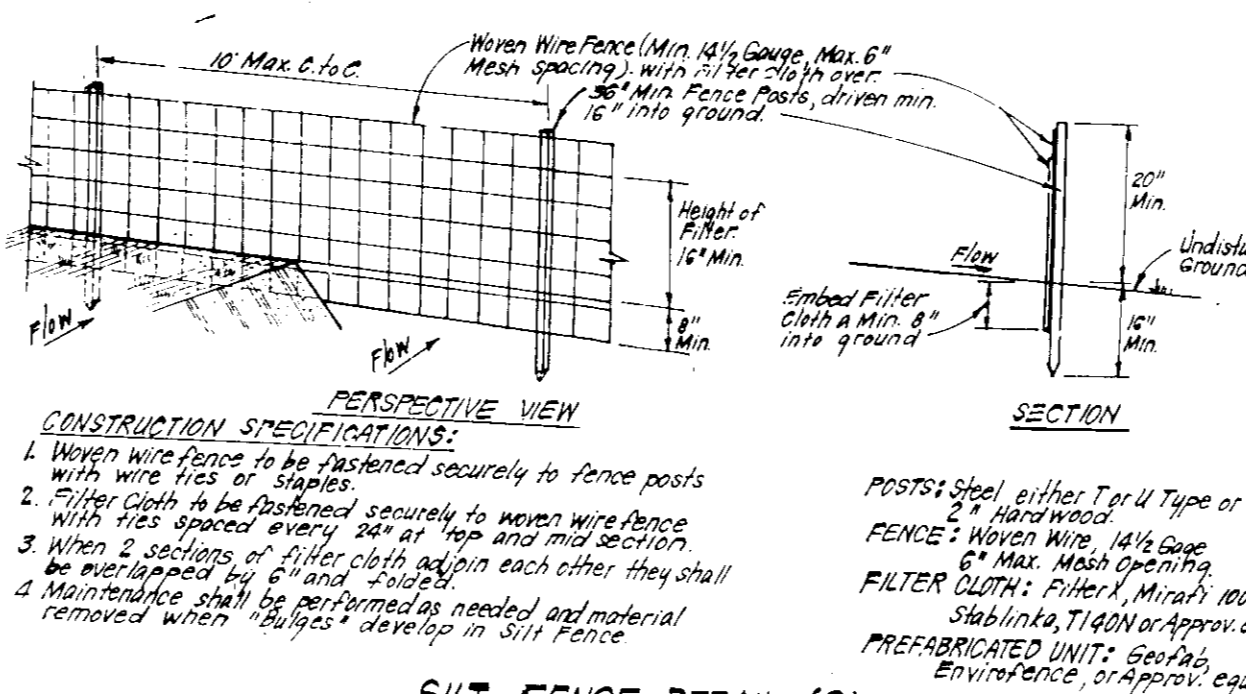 10' Max. C. to C.
Woven Wire Fence (Min. 14½ Gauge, Max. 6"
Mesh Spacing) with Filter Cloth over.
36" Min. Fence Posts, driven min.
16" into ground.
Height of
Filter.
16" Min.
8"
Min.
Flow
Flow
PERSPECTIVE VIEW
20"
Min.
Flow
Ground
Embed Filter
Cloth a Min. 8"
into ground
16"
Min.
SECTION
CONSTRUCTION SPECIFICATIONS:
1. Woven wire fence to be fastened securely to fence posts
with wire ties or staples.
2. Filter Cloth to be fastened securely to woven wire fence
with ties spaced every 24" at top and mid section.
3. When 2 sections of filter cloth adjoin each other they shall
be overlapped by 6" and folded.
4 Maintenance shall be performed as needed and material
removed when "Bulges" develop in Silt Fence.
POSTS: Steel either T or U Type or
2" Hardwood.
FENCE: Woven Wire, 14½ Gage
6" Max. Mesh Opening.
FILTER CLOTH: Filter X, Mirafi
Stablinka, T140N or Approv.
PREFABRICATED UNIT: Geofab,
Envirofence, or Approv.
SILT FENCE DETAIL